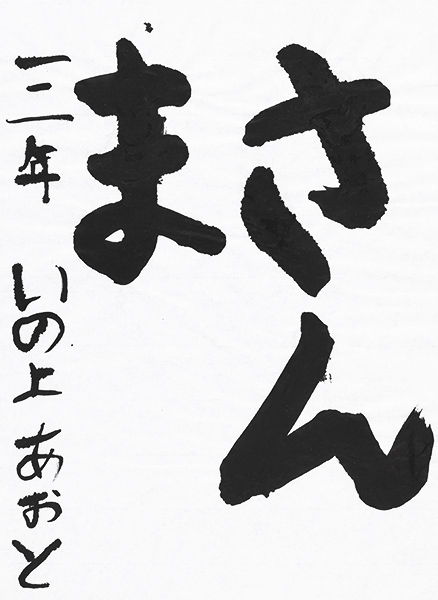 さん
ま
三年 いの上 あおと